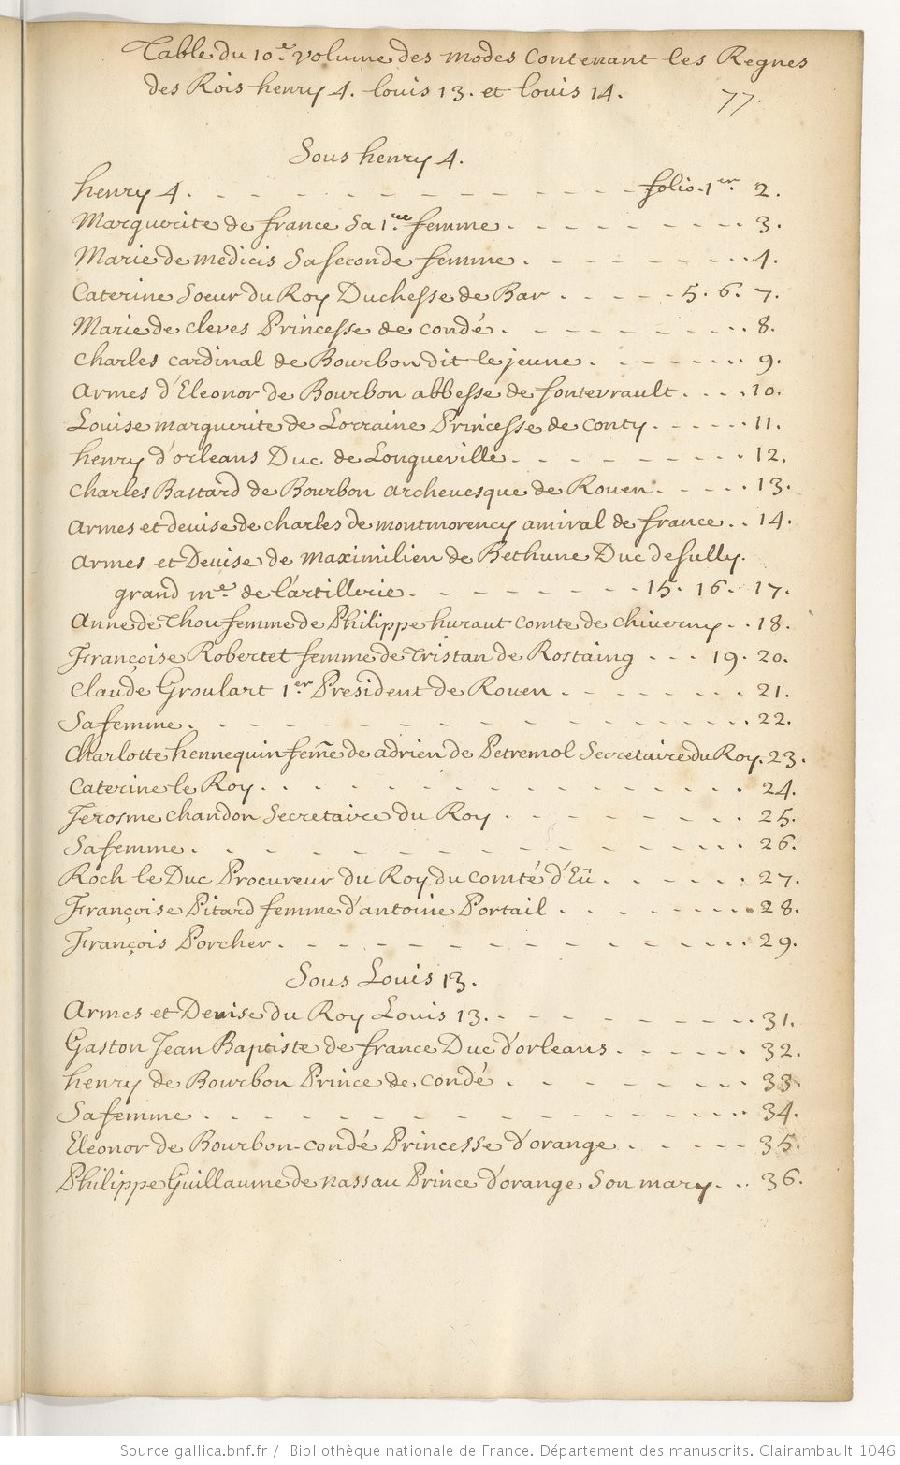 Table du 10.e volume des modes Contenant les Regnes
des Rois henry 4. louis 13. et louis 14.
77.
Sous henry 4.
henry 4. - - - - - - - - - - - - - folio. 1er. 2.
Marguerite de france Sa 1.ere femme - - - - - - - - 3.
Marie de medicis Sa seconde femme - - - - - - - 4.
Caterine Soeur du Roy Duchesse de Bar - - - - 5. 6. 7.
Marie de cleves Princesse de condé - - - - - - - - 8.
Charles cardinal de Bourbon dit le jeune - - - - - 9.
Armes d'Eleonor de Bourbon abbesse de fontevrault - - - 10.
Louise marguerite de Lorraine Princesse de Conty - - - - 11.
henry d'orleans Duc de Longueville - - - - - - - - 12.
Charles Bastard de Bourbon archevesque de Rouen - - - 13.
Armes et devise de charles de montmorency amiral de france - - 14.
Armes et Devise de maximilien de Bethune Duc de Sully.
grand m.e de l'artillerie - - - - - - - 15. 16. 17.
Anne de Thou femme de Philippe huraut Comte de Chiverny - - 18.
Françoise Robertet femme de Tristan de Rostaing - - - 19. 20.
Claude Groulart 1.er President de Rouen - - - - - - 21.
Sa femme - - - - - - - - - - - - - - - 22.
Charlotte hennequin fem̃e de adrien de Petremol Secretaire du Roy. 23.
Caterine le Roy - - - - - - - - - - - - - 24.
Jerosme chandon Secretaire du Roy - - - - - - - 25.
Sa femme - - - - - - - - - - - - - - - 26.
Roch le Duc Procureur du Roy du Comté d'Eü - - - - - 27.
Françoise Pitard femme d'antoine Portail - - - - - - 28.
François Porcher - - - - - - - - - - - - - 29.
Sous Louis 13.
Armes et Devise du Roy Louis 13. - - - - - - - - 31.
Gaston Jean Baptiste de france Duc d'orleans - - - - - 32.
henry de Bourbon Prince de condé - - - - - - - - 33.
Sa femme - - - - - - - - - - - - - - - 34.
Eleonor de Bourbon-condé Princesse d'orange - - - - - 35.
Philippe Guillaume de nassau Prince d'orange Son mary - - - 36.
Source gallica.bnf.fr / Bibliothèque nationale de France. Département des manuscrits. Clairambault 1046